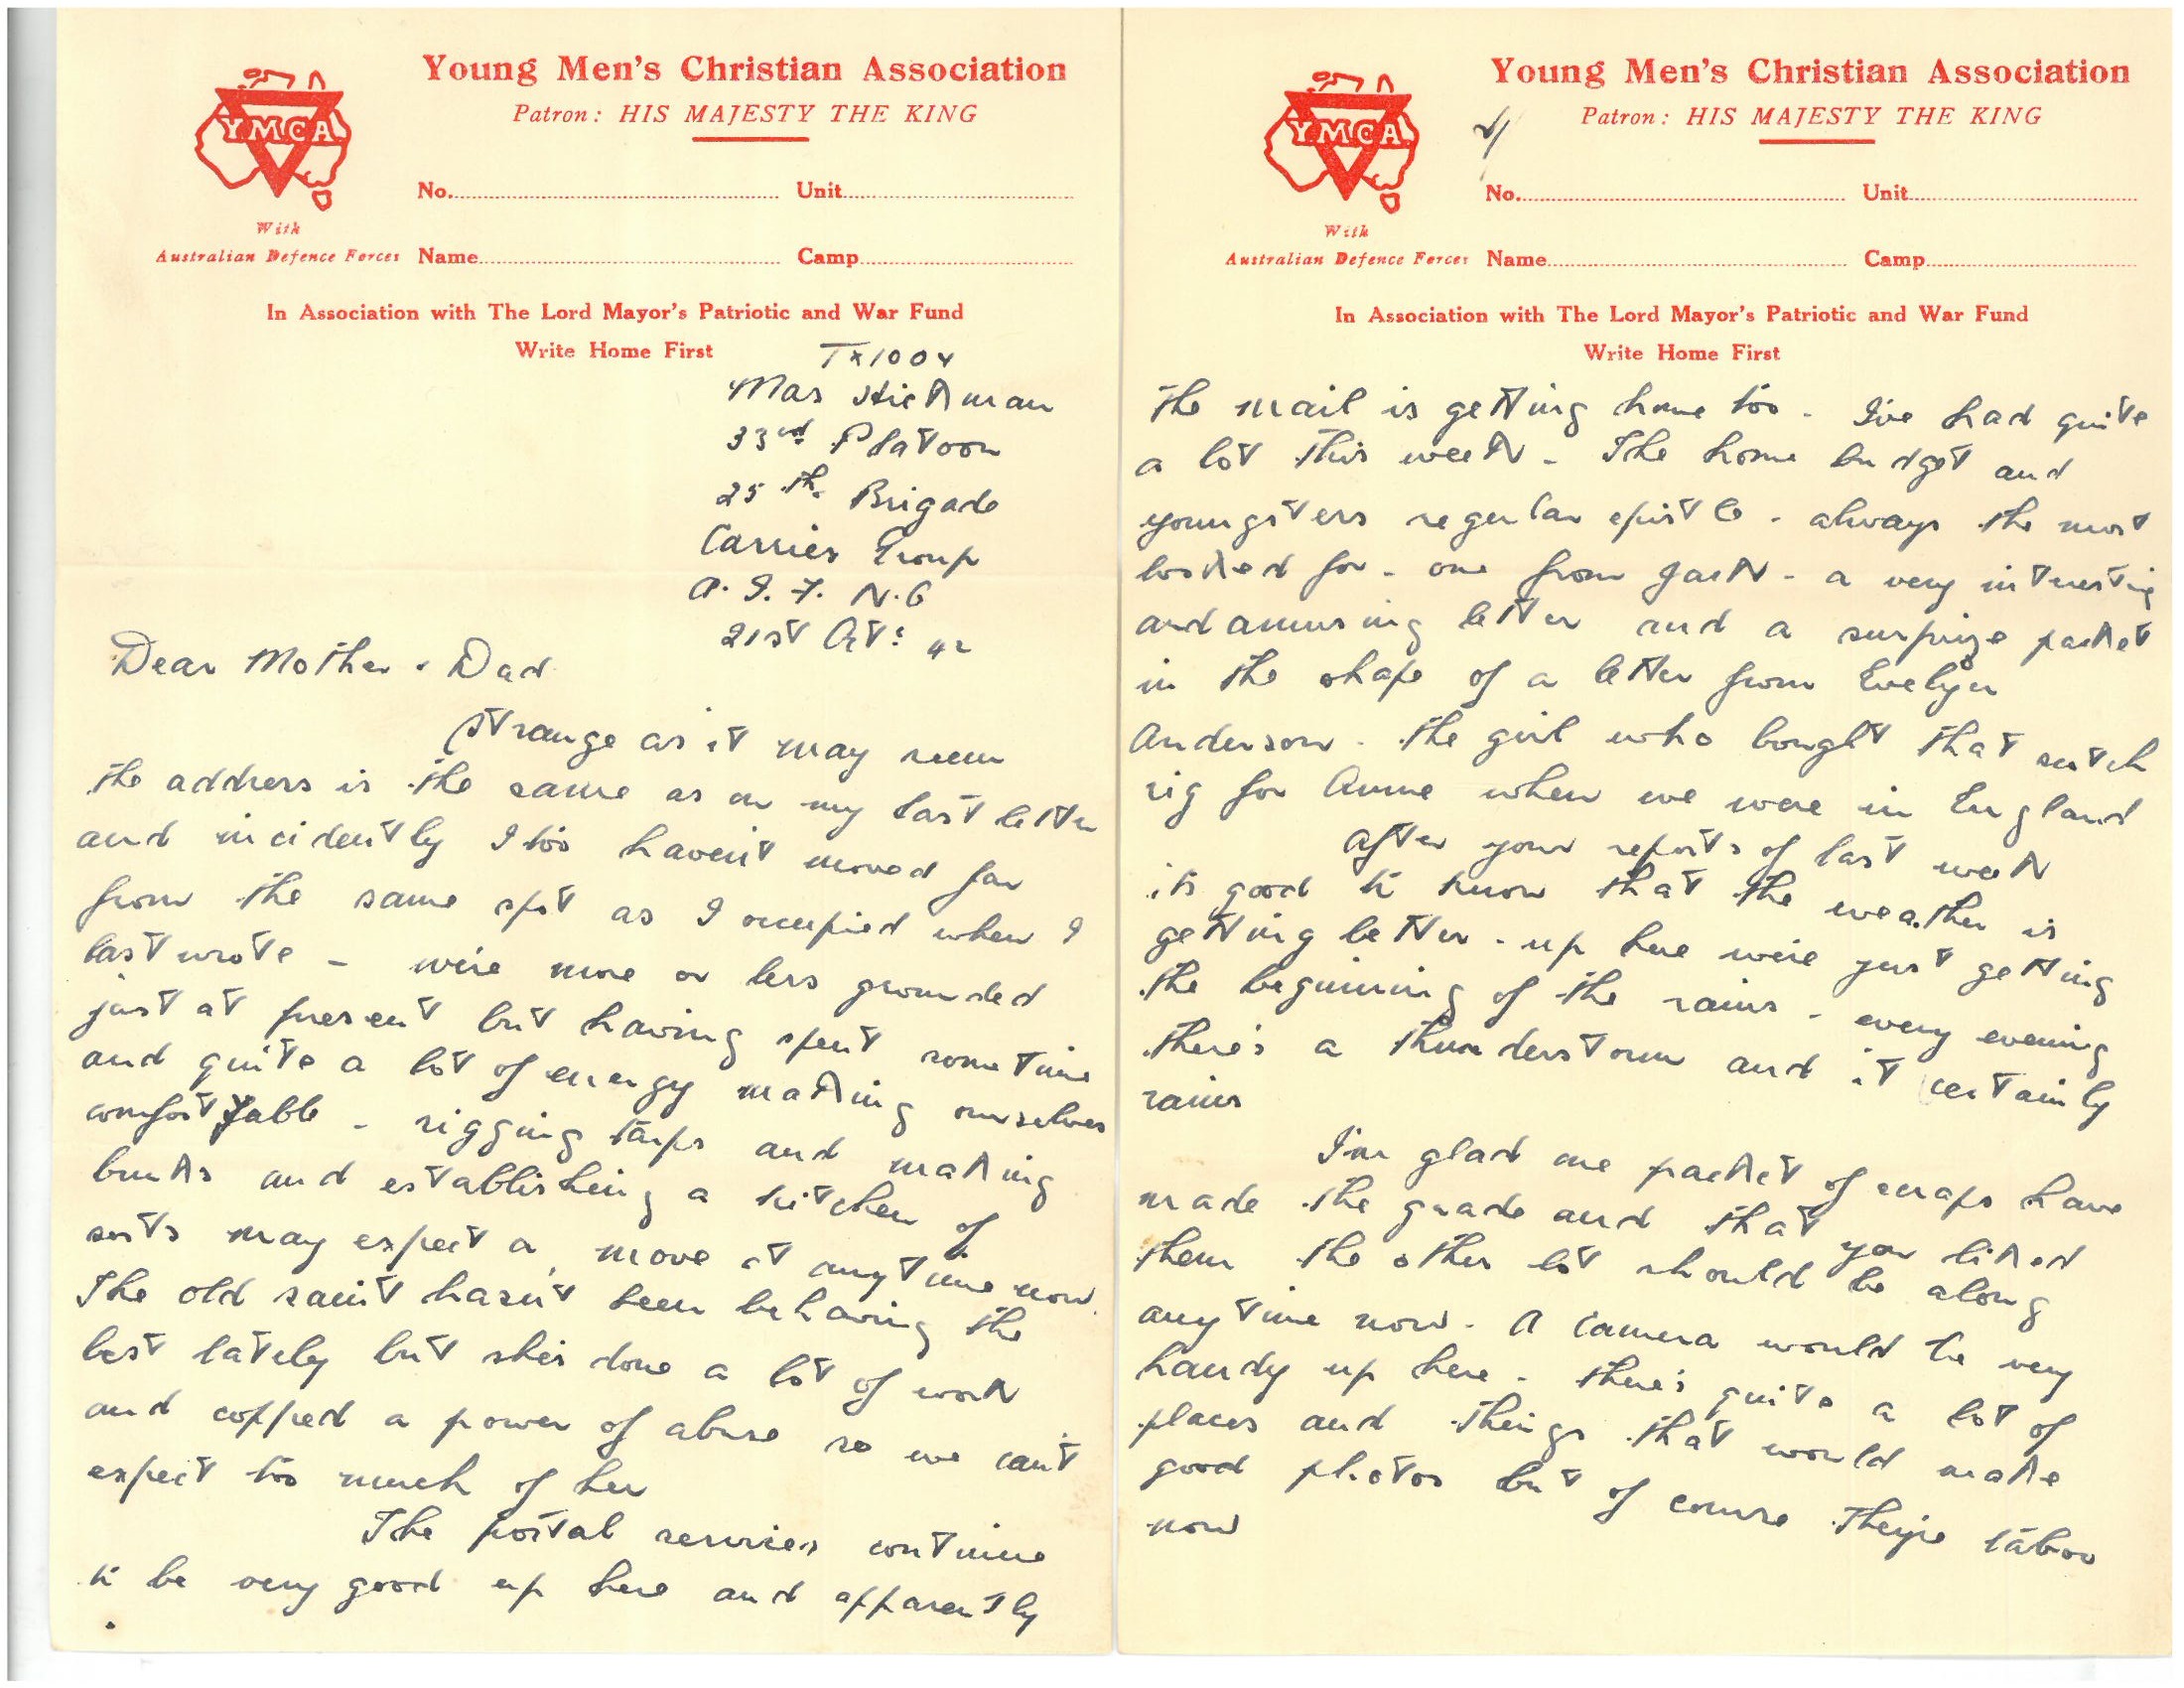 Young Men's Christian Association
Patron: HIS MAJESTY THE KING
YMCA
No. Unit
With
Australian Defence Forces Name Camp
In Association with The Lord Mayor's Patriotic and War Fund
Write Home First
TX1004
Mas Hickman
33rd Platoon
25th Brigade
Carrier Group
A.I.F. N.G
21st Oct: 42
Dear Mother & Dad
Strange as it may seem
the address is the same as on my last letter
and incidently I too haven't moved far
from the same spot as I occupied when I
last wrote - we're more or less grounded
just at present but having spent some time
and quite a lot of energy making ourselves
comfortable - rigging tarps and making
bunks and establishing a kitchen of
sorts may expect a move at anytime now.
The old saint hasn't been behaving the
best lately but she's done a lot of work
and copped a power of abuse so we can't
expect too much of her
The postal services continue
to be very good up here and apparently
Young Men's Christian Association
Patron: HIS MAJESTY THE KING
YMCA
2/
No. Unit
With
Australian Defence Forces Name Camp
In Association with The Lord Mayor's Patriotic and War Fund
Write Home First
the mail is getting home too - I've had quite
a lot this week - The home budget and
youngsters regular epistle - always the most
looked for - one from Jack - a very interesting
and amusing letter and a surprize packet
in the shape of a letter from Evelyn
Anderson - the girl who bought that
rig for Anne when we were in England
After your reports of last week
its good to know that the weather is
getting better - up here we're just getting
the beginning of the rains - every evening
there's a thunderstorm and it certainly
rains
I'm glad one packet of snaps have
made the grade and that you liked
them the other lot should be along
anytime now. A camera would be very
handy up here - there's quite a lot of
places and things that would make
good photos but of course they're taboo
now